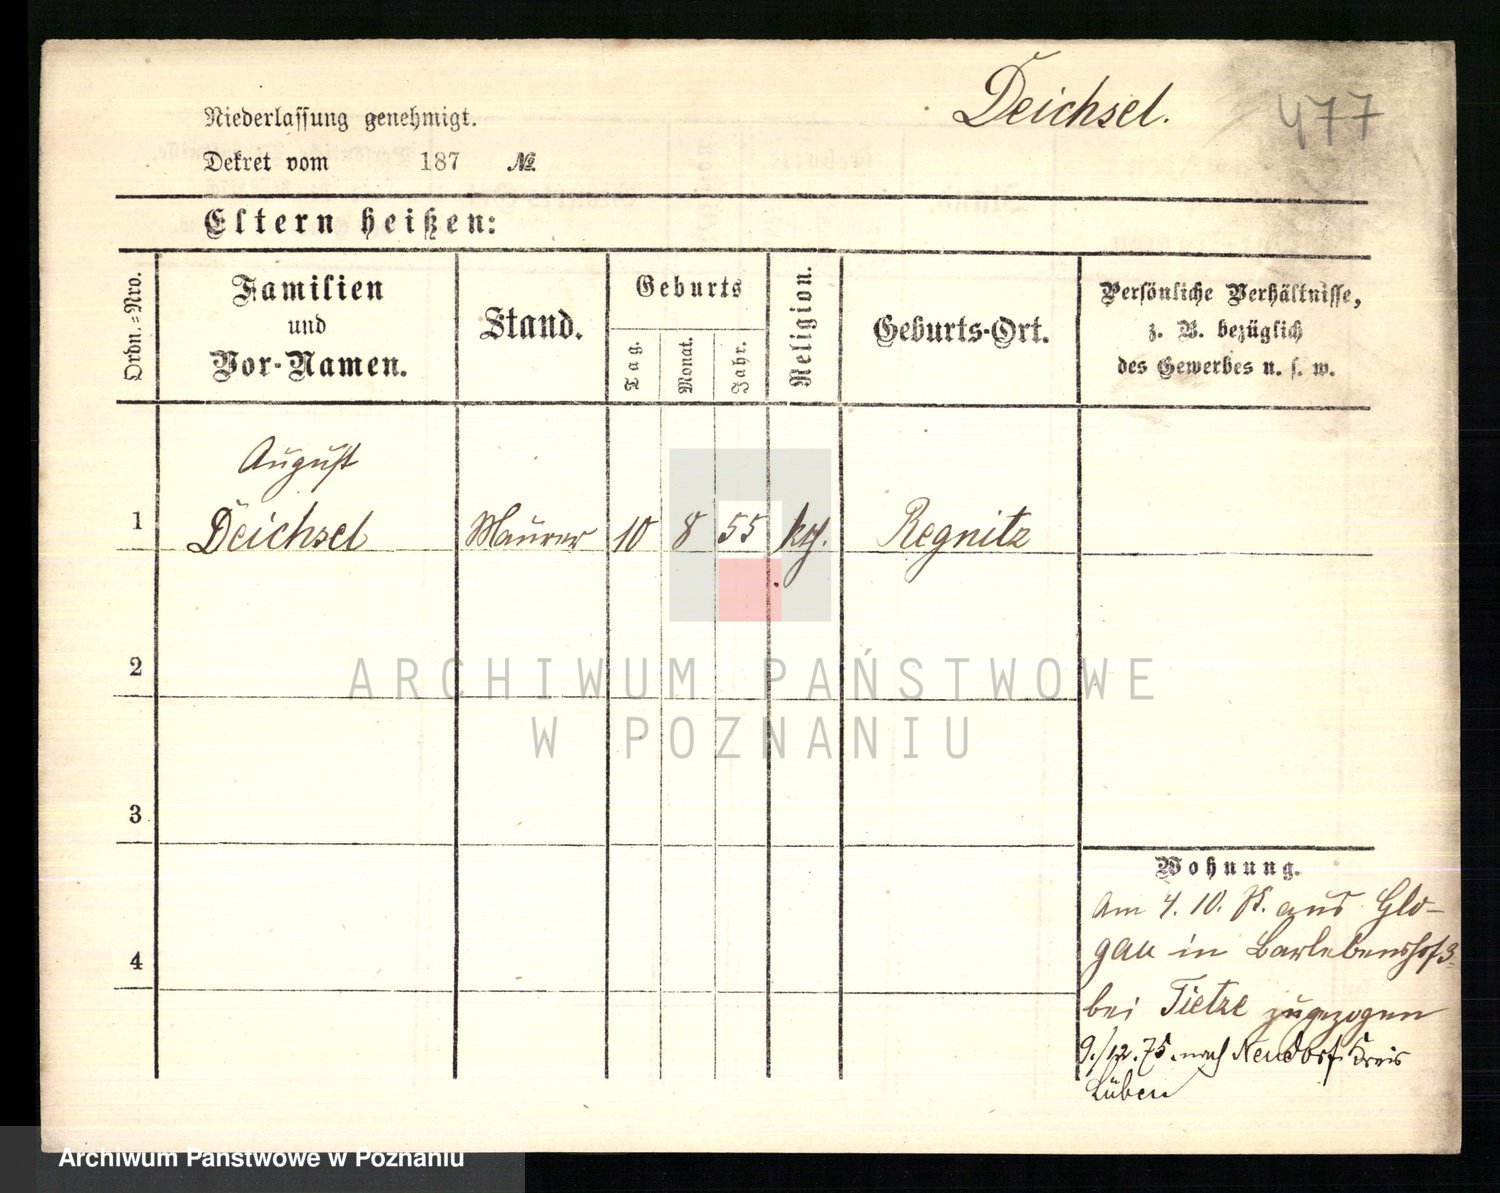 Deichsel.
477
Niederlassung genehmigt.
Dekret vom 187 №
Eltern heißen:
Ordn.-Nro.
Familien
und
Vor-Namen.
Stand.
Geburts
Tag.
Monat.
Jahr.
Religion.
Geburts-Ort.
Persönliche Verhältnisse,
z. B. bezüglich
des Gewerbes u. s. w.
August
1 Deichsel Maurer 10 8 55 Regnitz
2
3
4
ARCHIWUM PAŃSTWOWE
W POZNANIU
Wohnung.
Am 4. 10. aus Glo-
gau in Barlebenshof 3
bei Tietze zugezogen
9./12. 75. nach Neudorf Kreis
Lüben
Archiwum Państwowe w Poznaniu